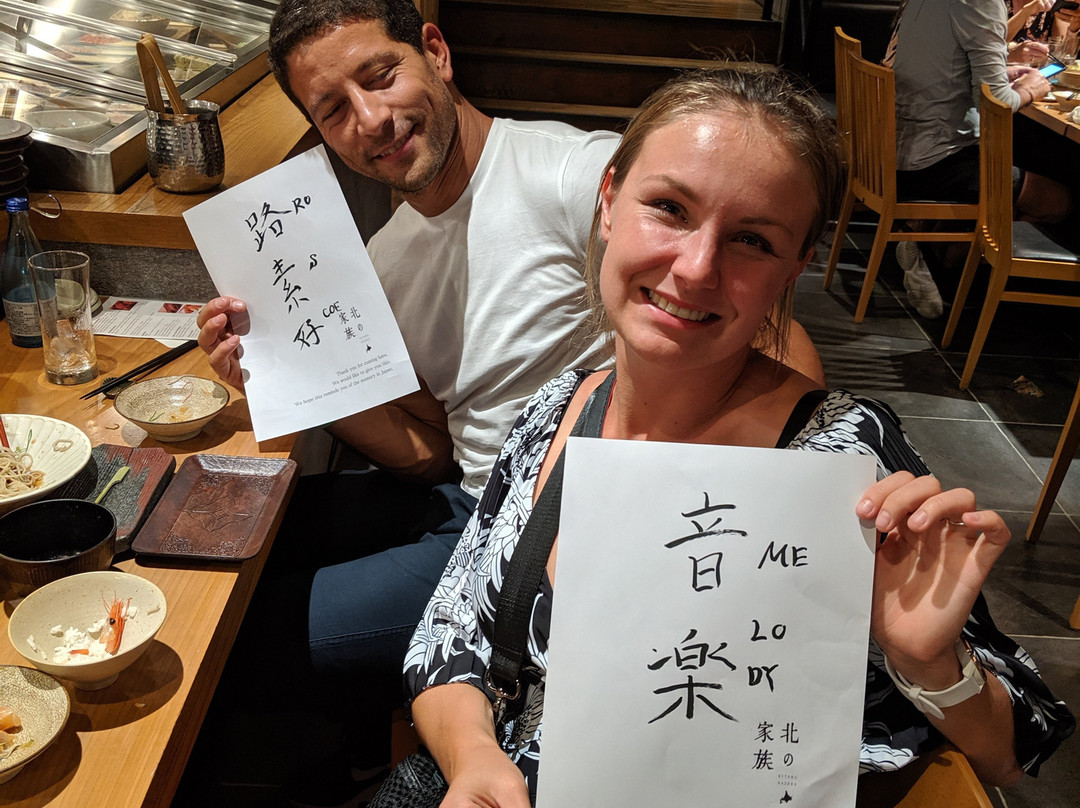 路 RO
素 S
好 COE
北の
家族
Thank you for coming here.
We would like to give you this.
We hope this reminds you of the memory in Japan.
音 ME
楽 LO
DY
北の
家族
KITANO
KAZOKU